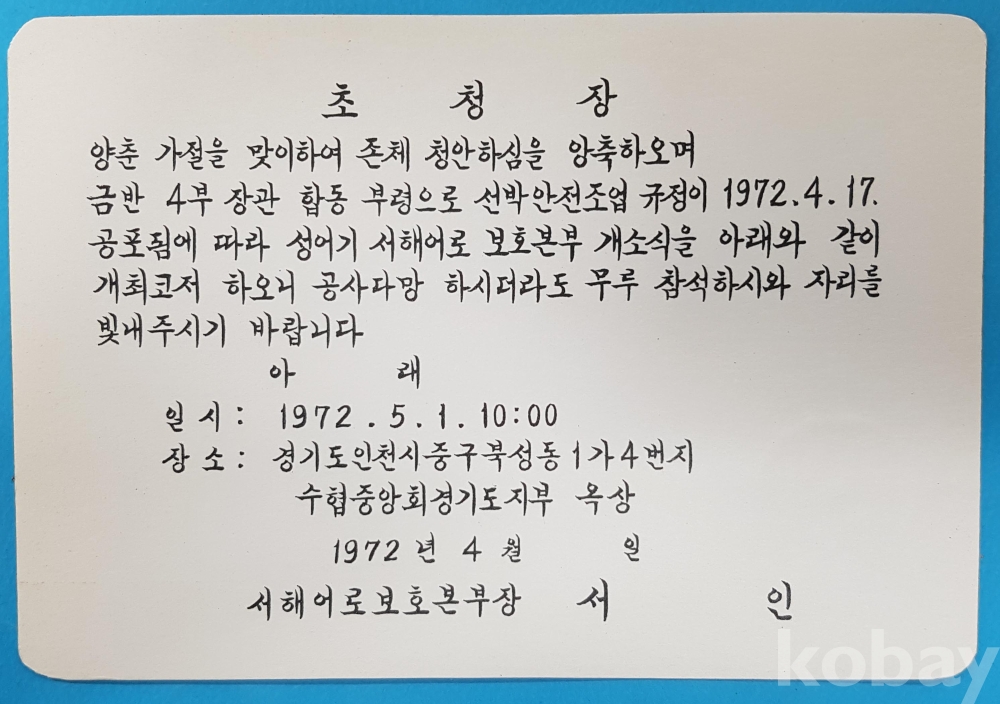 초 청 장
양춘 가절을 맞이하여 존체 청안하심을 앙축하오며
금반 4부 장관 합동 부령으로 선박안전조업 규정이 1972.4.17.
공포됨에 따라 성어기 서해어로 보호본부 개소식을 아래와 같이
개최코저 하오니 공사다망 하시더라도 무루 참석하시와 자리를
빛내주시기 바랍니다
아 래
일 시 : 1972 . 5 . 1 . 10:00
장 소 : 경기도인천시중구북성동1가4번지
수협중앙회경기도지부 옥상
1972 년 4 월 일
서해어로보호본부장 서 인
kobay